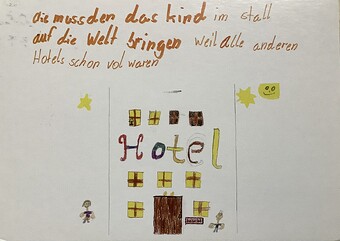 die mussden das kind im stall
auf die Welt bringen weil alle anderen
Hotels schon vol waren
Hotel